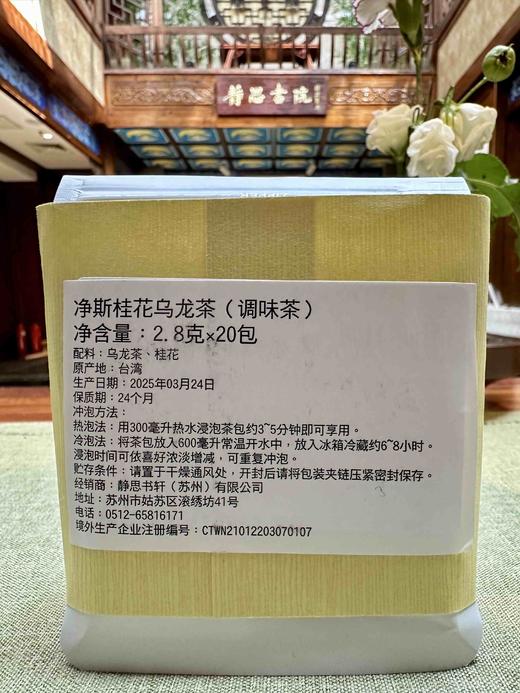 靜思書院
净斯桂花乌龙茶（调味茶）
净含量：2.8克×20包
配料：乌龙茶、桂花
原产地：台湾
生产日期：2025年03月24日
保质期：24个月
冲泡方法：
热泡法：用300毫升热水浸泡茶包约3~5分钟即可享用。
冷泡法：将茶包放入600毫升常温开水中，放入冰箱冷藏约6~8小时。
浸泡时间可依喜好浓淡增减，可重复冲泡。
贮存条件：请置于干燥通风处，开封后请将包装夹链压紧密封保存。
经销商：静思书轩（苏州）有限公司
地址：苏州市姑苏区滚绣坊41号
电话：0512-65816171
境外生产企业注册编号：CTWN21012203070107